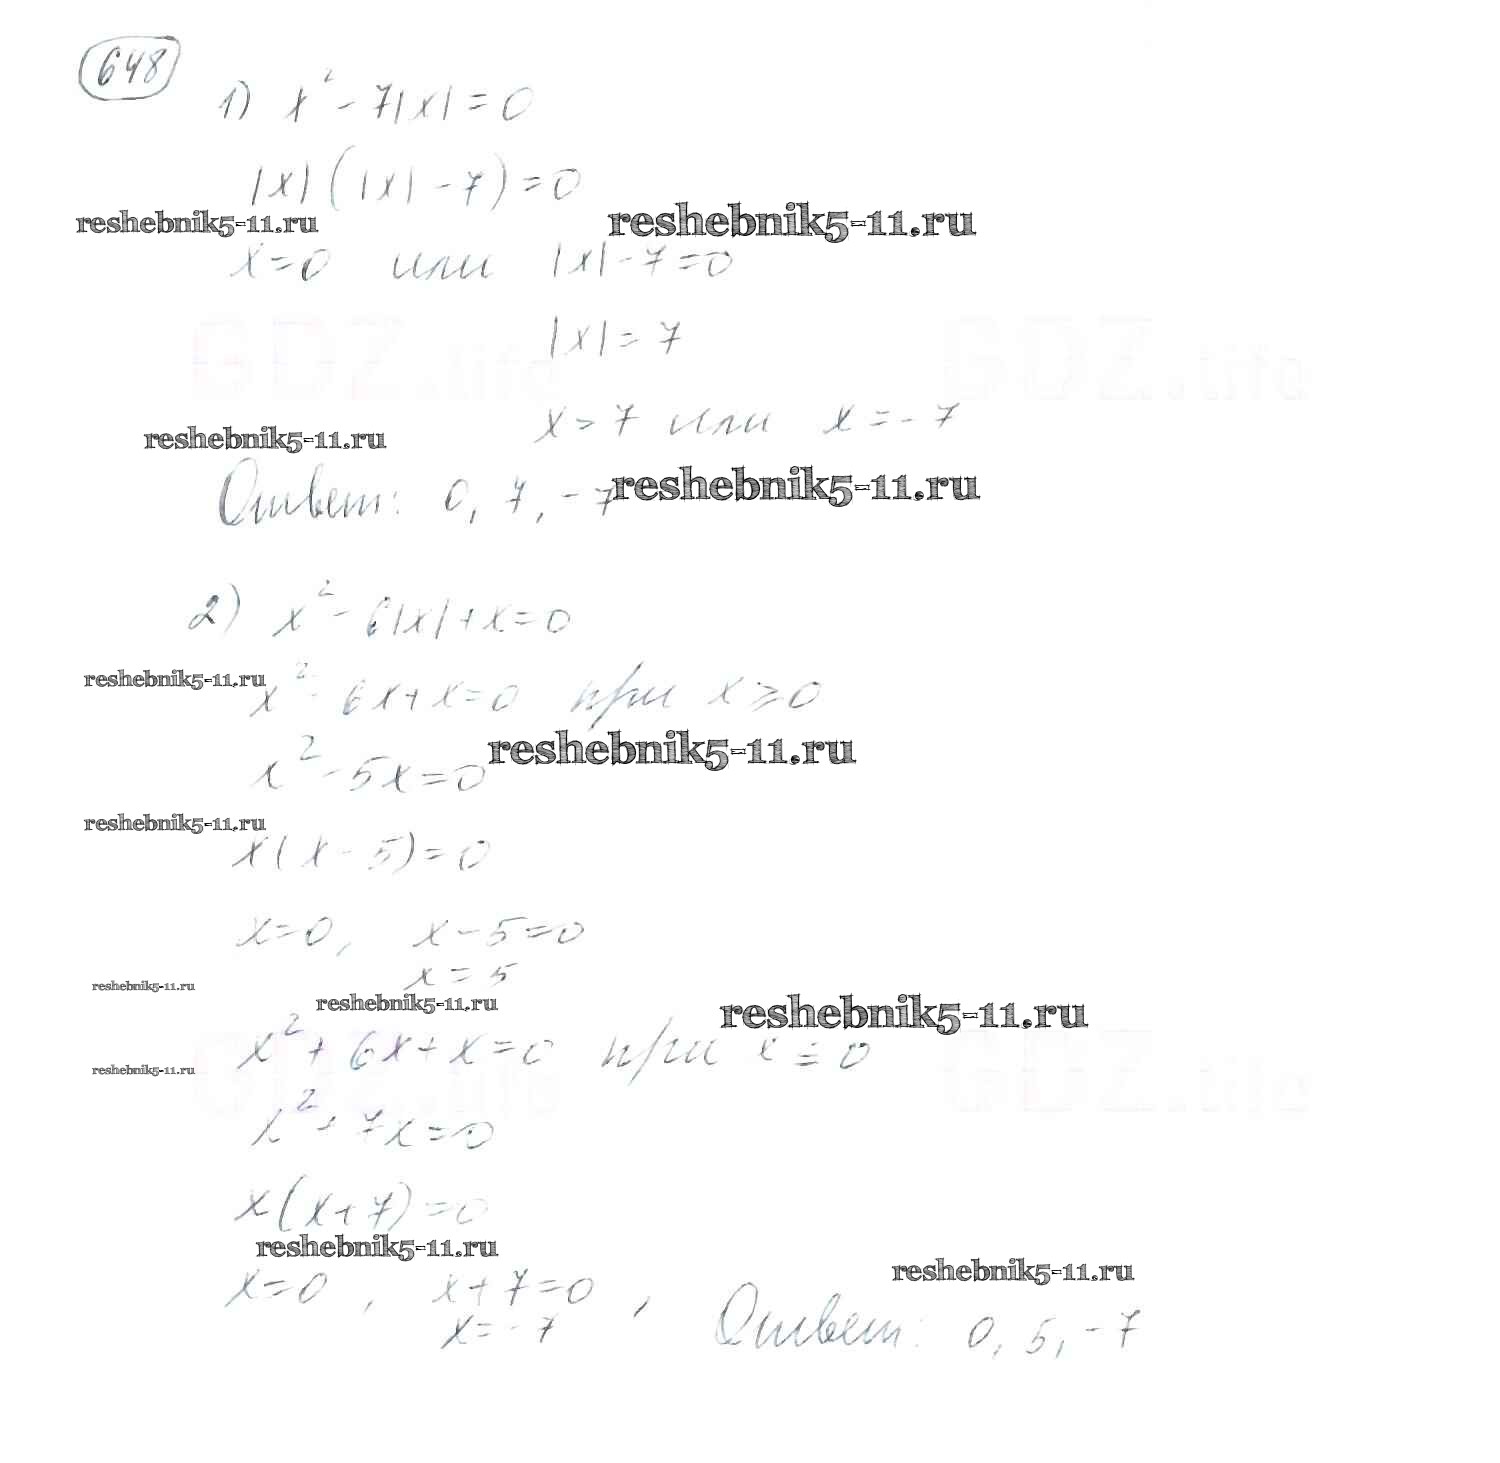 648
1) x² - 7|x| = 0
|x| (|x| - 7) = 0
reshebnik5-11.ru reshebnik5-11.ru
x = 0 или |x| - 7 = 0
|x| = 7
GDZ.life GDZ.life
x = 7 или x = -7
reshebnik5-11.ru
Ответ: 0, 7, -7 reshebnik5-11.ru
2) x² - 6|x| + x = 0
reshebnik5-11.ru
x² - 6x + x = 0 при x ⩾ 0
x² - 5x = 0 reshebnik5-11.ru
reshebnik5-11.ru
x(x - 5) = 0
x = 0, x - 5 = 0
x = 5
reshebnik5-11.ru reshebnik5-11.ru reshebnik5-11.ru
x² + 6x + x = 0 при x ≤ 0
reshebnik5-11.ru
GDZ.life GDZ.life
x² + 7x = 0
x(x + 7) = 0
reshebnik5-11.ru reshebnik5-11.ru
x = 0 , x + 7 = 0 ,
x = -7 Ответ: 0, 5, -7